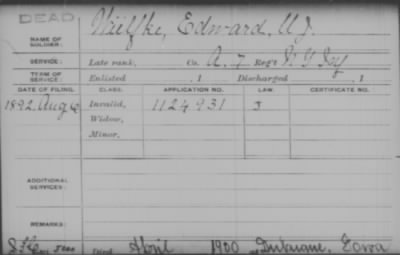 DEAD
NAME OF SOLDIER: Wülfke, Edward, W J.
SERVICE: Late rank, Co. A. 7 Reg't N Y Inf
TERM OF SERVICE: Enlisted , 1 Discharged , 1
DATE OF FILING. CLASS. APPLICATION NO. LAW. CERTIFICATE NO.
1892 Aug 6 Invalid, 1124931 J
Widow,
Minor,
ADDITIONAL SERVICES:
REMARKS:
Died April 1900 at Dubuque, Iowa